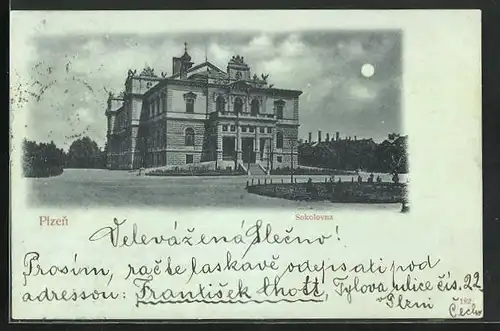 Plzeň
Sokolovna
Velevážená Slečno!
Prosím, račte laskavě odepsati pod
adressou: František Lhott, Tylova ulice čís. 22
v Plzni
Čechy